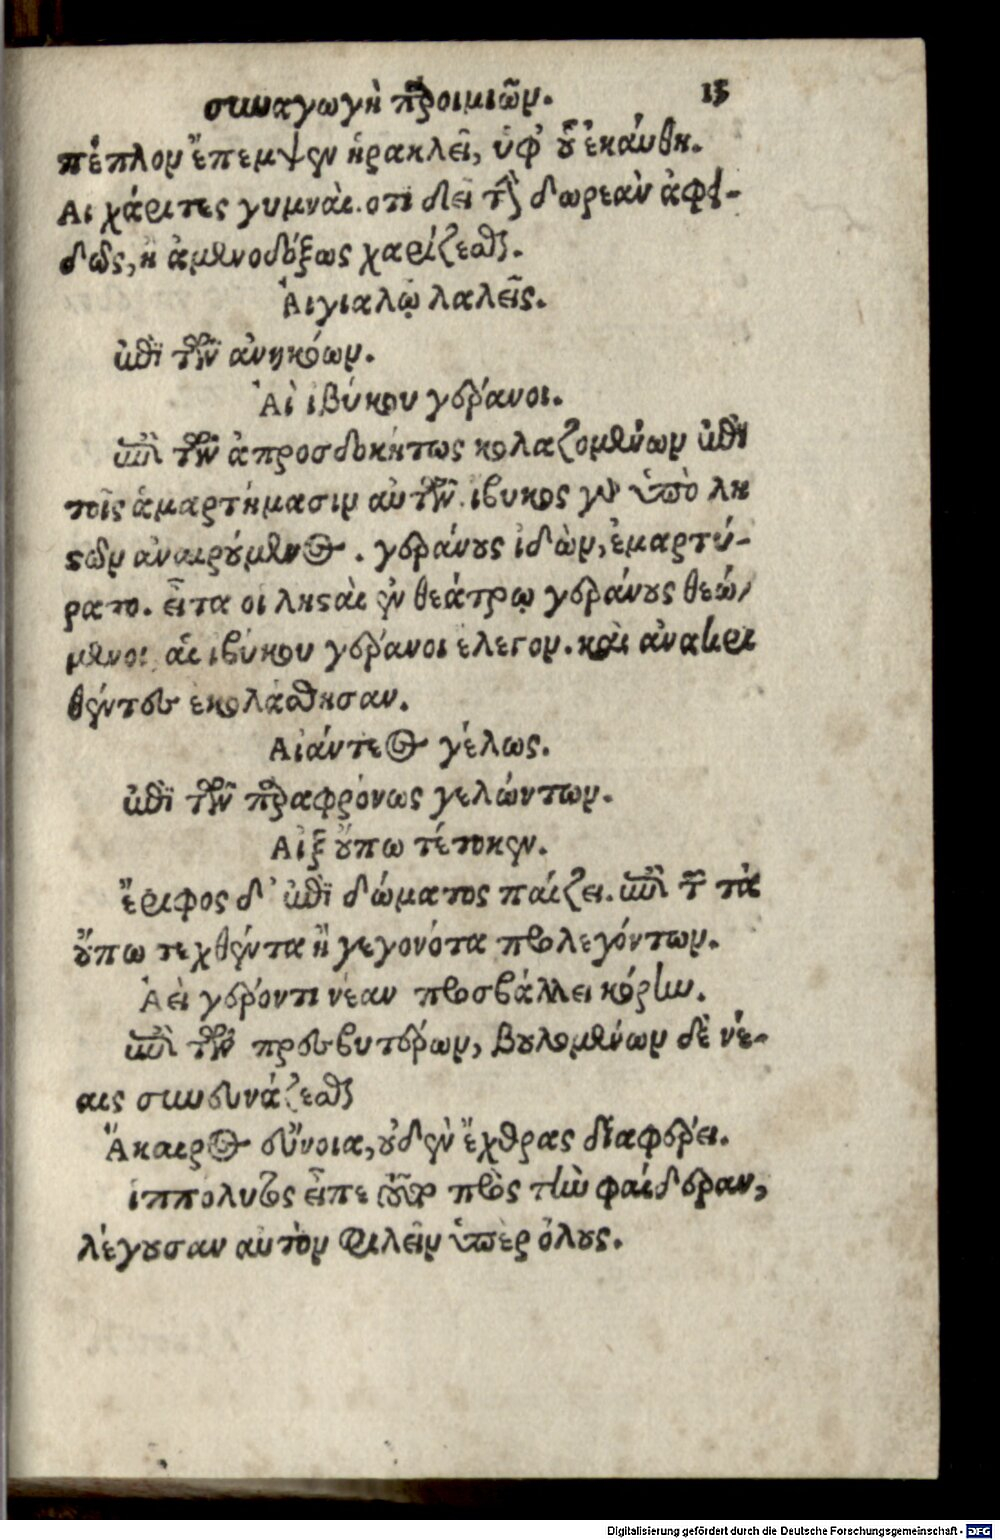 συναγωγὴ παροιμιῶν. 15
πέπλον ἔπεμψεν ἡρακλεῖ, ὑφ' οὗ ἐκαύθη.
Αι χάριτες γυμναὶ. οτι δεῖ τὴν δωρεὰν ἀφει-
δῶς, ἢ ἀμενοδόξως χαρίζεσθαι.
Ἀιγιαλῷ λαλεῖς.
ἐπὶ τῶν ἀνηκόων.
Ἁὶ ἰβύκου γέρανοι.
ἐπὶ τῶν ἀπροσδοκήτως κολαζομένων ἐπὶ
τοῖς ἁμαρτήμασιν αὐτῶν. ιβυκος γὰρ ὑπὸ λη
στῶν ἀναιρούμενος. γεράνους ἰδὼν, ἐμαρτύ-
ρατο. εἶτα οἱ λησταὶ ἐν θεάτρῳ γεράνους θεώ/
μενοι αἱ ιβύκου γέρανοι ἔλεγον. καὶ ἀνακρι
θέντες ἐκολάσθησαν.
Αἰάντειος γέλως.
ἐπὶ τῶν παραφρόνως γελώντων.
Αἲξ οὔπω τέτοκεν.
ἔριφος δ' ἐπὶ δώματος παίζει. ἐπὶ τῶν τὰ
οὔπω τεχθέντα ἢ γεγονότα προλεγόντων.
Ἀεὶ γέροντι νέαν προσβάλλει κόρην.
ἐπὶ τῶν πρεσβυτέρων, βουλομένων δὲ νέ-
αις συνευνάζεσθαι
Ἄκαιρος εὔνοια, οὐδὲν ἔχθρας διαφέρει.
ἱππόλυτος εἶπε πρὸς τὴν φαίδεραν,
λέγουσαν αὐτὸν φιλεῖν ὑπὲρ ὅλους.
Digitalisierung gefördert durch die Deutsche Forschungsgemeinschaft - DFG